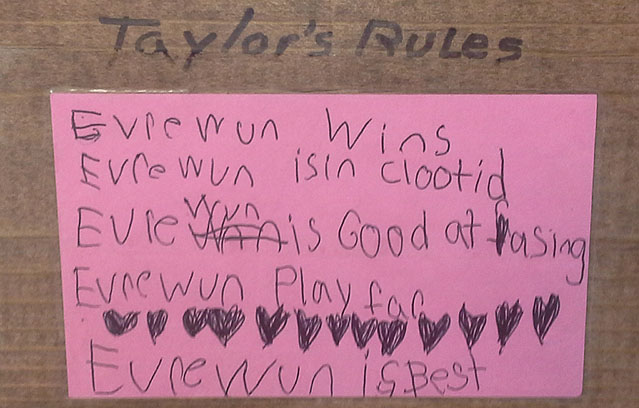 Taylor's Rules
Evrewun Wins
Evrewun isin clootid
Evrewun is Good at rasing
Evrewun Play far
Evrewun is Best